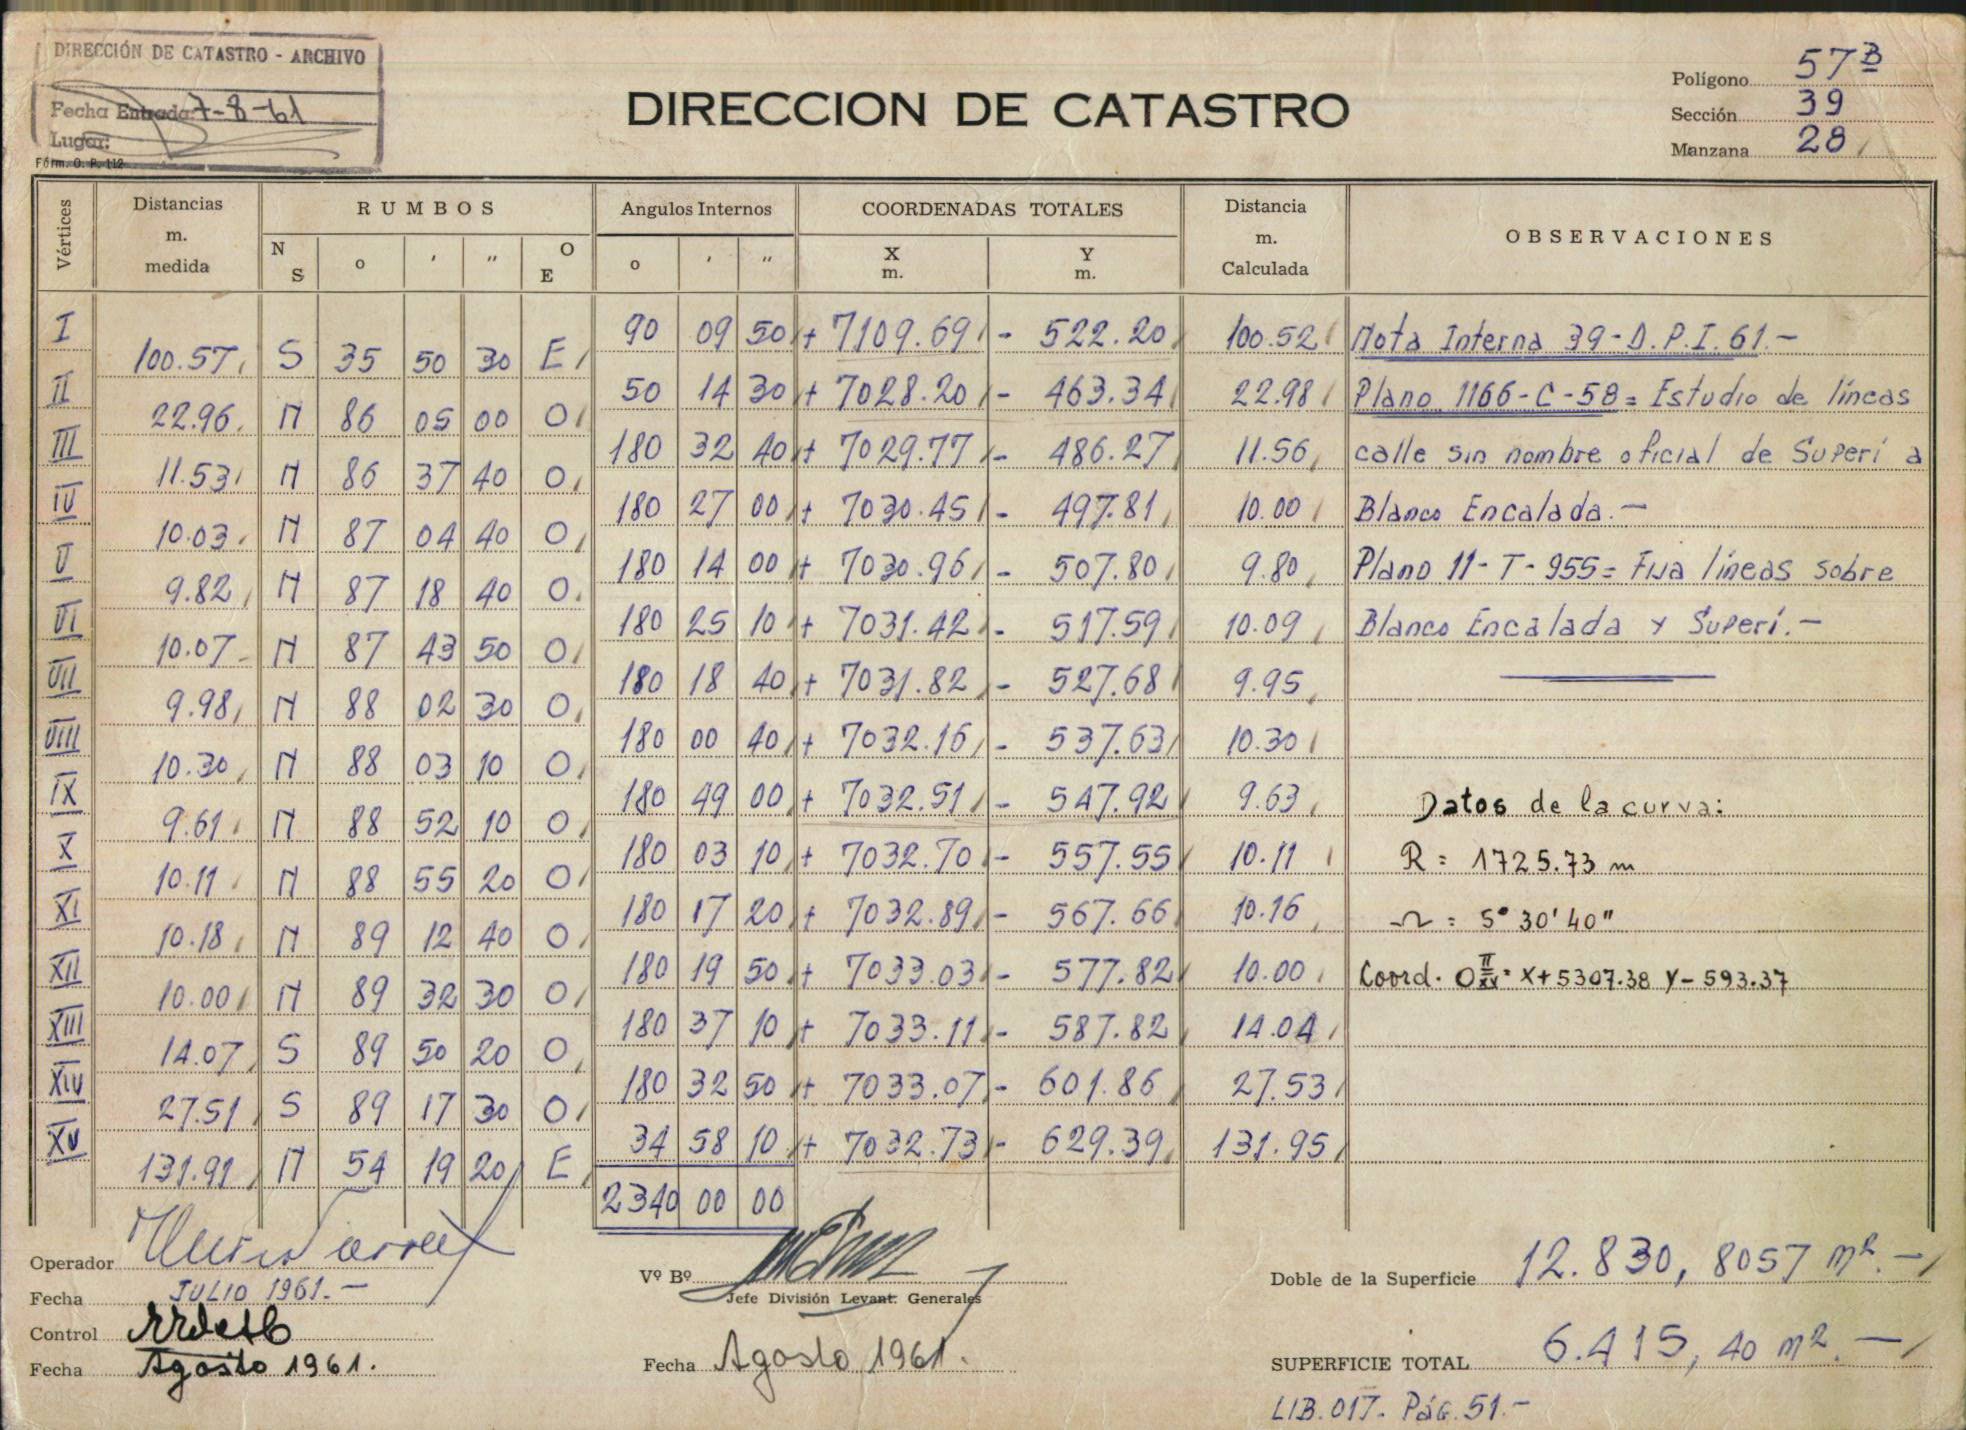 DIRECCIÓN DE CATASTRO - ARCHIVO
Fecha Entrada: 7-8-61
Lugar:
Fórm. O. P. 112
DIRECCION DE CATASTRO
Polígono 57B
Sección 39
Manzana 28
Vértices Distancias m. medida RUMBOS Angulos Internos COORDENADAS TOTALES Distancia m. Calculada OBSERVACIONES
N S o ' " O E o ' " X m. Y m.
I 90 09 50 + 7109.69 - 522.20 100.52 Nota Interna 39-D.P.I.61.-
100.57 S 35 50 30 E
II 50 14 30 + 7028.20 - 463.34 22.98 Plano 1166-C-58= Estudio de líneas
22.96 N 86 05 00 O
III 180 32 40 + 7029.77 - 486.27 11.56 calle sin nombre oficial de Superí a
11.53 N 86 37 40 O
IV 180 27 00 + 7030.45 - 497.81 10.00 Blanco Encalada.-
10.03 N 87 04 40 O
V 180 14 00 + 7030.96 - 507.80 9.80 Plano 11-T-955= Fija líneas sobre
9.82 N 87 18 40 O
VI 180 25 10 + 7031.42 - 517.59 10.09 Blanco Encalada y Superí.-
10.07 N 87 43 50 O
VII 180 18 40 + 7031.82 - 527.68 9.95
9.98 N 88 02 30 O
VIII 180 00 40 + 7032.16 - 537.63 10.30
10.30 N 88 03 10 O
IX 180 49 00 + 7032.51 - 547.92 9.63 Datos de la curva:
9.61 N 88 52 10 O
X 180 03 10 + 7032.70 - 557.55 10.11 R = 1725.73 m
10.11 N 88 55 20 O
XI 180 17 20 + 7032.89 - 567.66 10.16 Ω = 5° 30' 40"
10.18 N 89 12 40 O
XII 180 19 50 + 7033.03 - 577.82 10.00 Coord. O II XV = X+5307.38 Y-593.37
10.00 N 89 32 30 O
XIII 180 37 10 + 7033.11 - 587.82 14.04
14.07 S 89 50 20 O
XIV 180 32 50 + 7033.07 - 601.86 27.53
27.51 S 89 17 30 O
XV 34 58 10 + 7032.73 - 629.39 131.95
131.91 N 54 19 20 E
2340 00 00
Operador
Fecha JULIO 1961.-
Control
Fecha Agosto 1961.
Vº Bº
Jefe División Levant. Generales
Fecha Agosto 1961.
Doble de la Superficie 12.830,8057 m².-
SUPERFICIE TOTAL 6.415,40 m².-
LIB.017. Pág.51.-